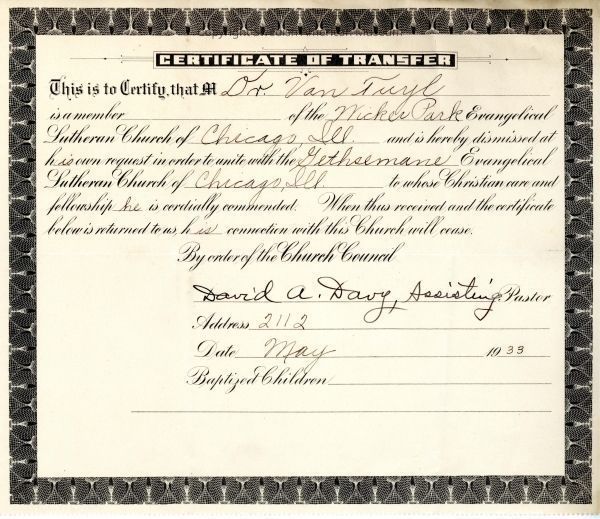 CERTIFICATE OF TRANSFER
This is to Certify, that M Dr Van Tuyl
is a member of the Wicker Park Evangelical
Lutheran Church of Chicago, Ill. and is hereby dismissed at
his own request in order to unite with the Gethsemane Evangelical
Lutheran Church of Chicago, Ill. to whose Christian care and
fellowship he is cordially commended. When thus received and the certificate
below is returned to us, his connection with this Church will cease.
By order of the Church Council
David A. Davy, Assisting Pastor
Address 2112
Date May 1933
Baptized Children